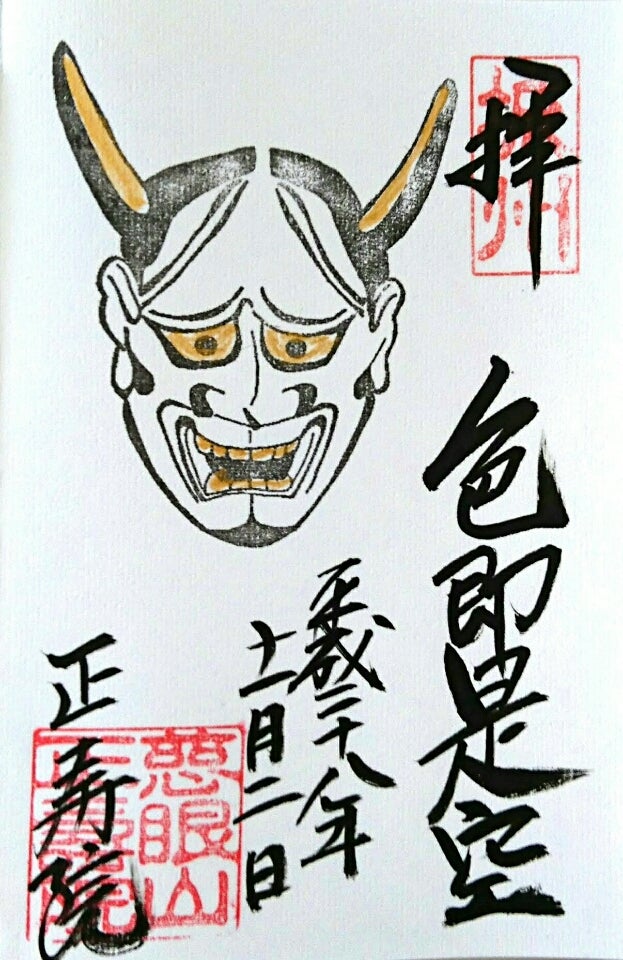 拝
色即是空
平成二十八年
十一月二日
正寿院
慈眼山
正壽院